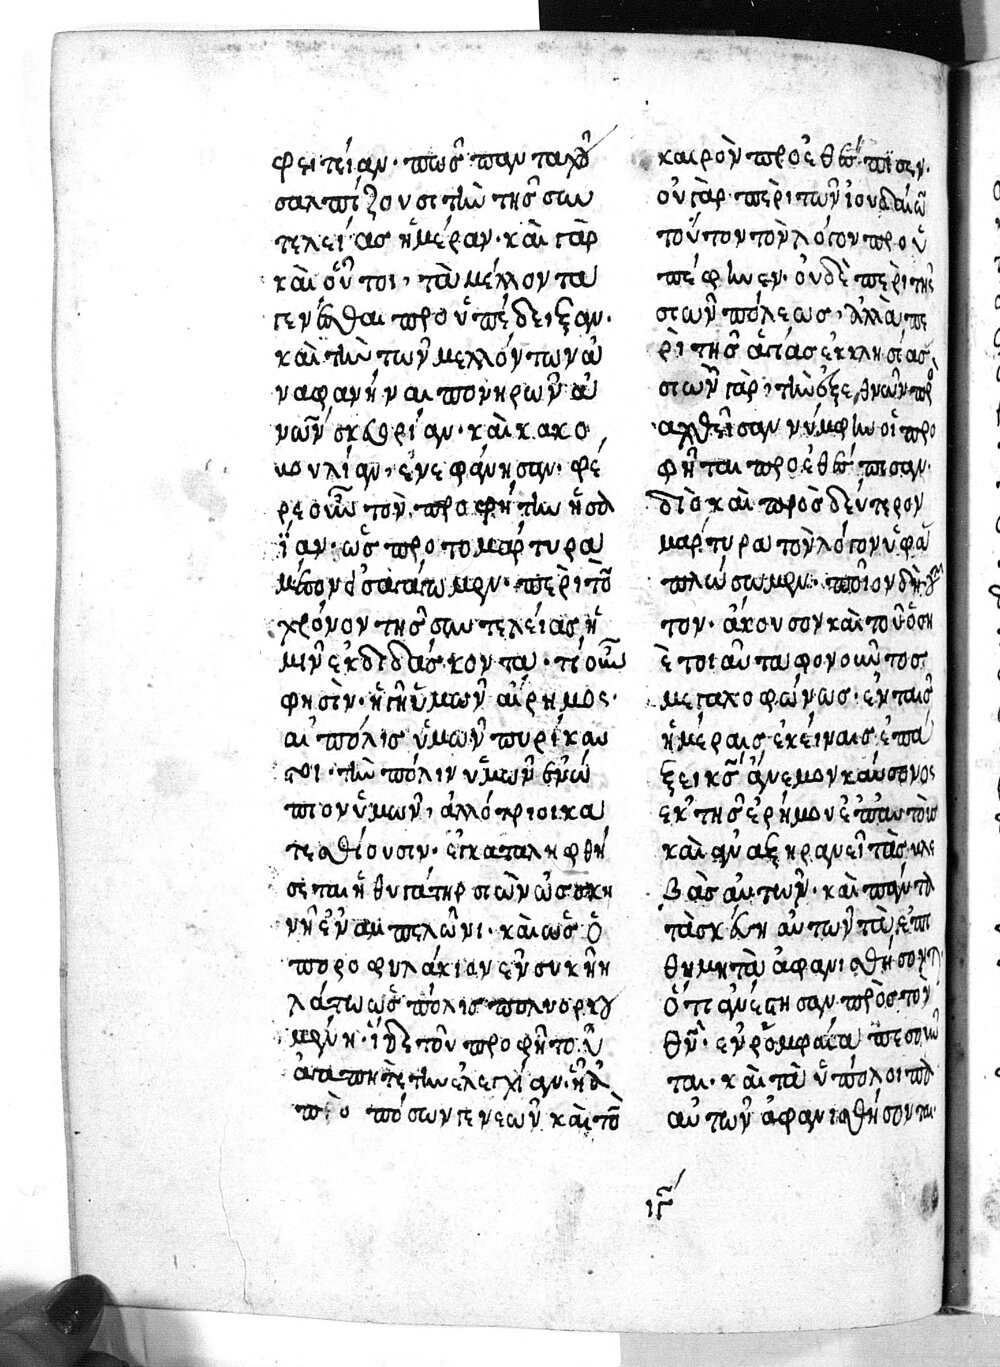 φειτείαν· πῶς πανταχοῦ
σαλπίζουσι τὴν τῆς συν
τελείας ἡμέραν· καὶ γὰρ
καὶ οὗτοι, τὰ μέλλοντα
γενέσθαι προϋπέδειξαν·
καὶ τὴν τῶν μελλόντων ἀ
ναφανῆναι πονηρῶν ἀ
νῶν σκευρίαν· καὶ κακο
βουλίαν, ἐνεφάνησαν· φέ
ρε οὖν τὸν προφήτην ἡσα
ΐαν· ὡς πρωτομάρτυρα
μέσον εἰσαγάγωμεν· περὶ τὸ
χρόνον τῆς συντελείας ἡ
μῖν ἐκδιδάσκοντα· τί οὖν
φησὶν· ἡ γῆ ὑμῶν αἴρημος·
αἱ πόλις ὑμῶν πυρίκαυ
στοι· τὴν πόλιν ὑμῶν ἐνώ
πιον ὑμῶν, ἀλλότριοι κα
τεσθίουσιν· ἐγκαταληφθή
σεται ἡ θυγάτηρ σιὼν ὡς σκη
νὴ ἐν ἀμπελῶνι· καὶ ὡς ὁ
ποροφυλάκιαν ἐν συκηη
λάτω ὡς πόλις πολυορκου
μένη· ἴδε τὸν προφήτου
ἀγαπητὲ τὴν ἐλεγχίαν· ἤδη
πρὸ πόσων γενεῶν καὶ τὸ
καιρὸν προέθεσπισεν·
οὐ γὰρ περὶ τῶν ἰουδαίω
τοῦτον τὸν λόγον προ
πέφηνεν· οὐδὲ περὶ τῆς
σιὼν πόλεως, ἀλλὰ πε
ρὶ τῆς ἁγίας ἐκκλησίας
σιὼν γὰρ, τὴν ἐξ ἐθνῶν προ
αχθεῖσαν νύμφην οἱ προ
φῆται προέθεσπισαν·
διὸ καὶ πρὸς δεύτερον
μάρτυρα τὸν λόγον ἐφα
πλώσωμεν· ποῖον δὴ
τον· ἄκουσον καὶ τοῦ ὁση
ὲ τοιαῦτα φονοῦντος
μεγαλοφώνως· ἐν ταῖς
ἡμέραις ἐκείναις ἐπά
ξει κς ἄνεμον καύσονος
ἐκ τῆς ἐρήμου ἐπ' αὐτοὺς
καὶ ἀναξηρανεῖ τὰς φλε
βὰς αὐτῶν· καὶ πάντα
τὰ σκεύη αὐτῶν τὰ ἐπι
θημητὰ ἀφανισθήσονται
ὅτι ἀνέστησαν πρὸς τὸν
θν· ἐν ῥομφαία πεσοῦν
ται· καὶ τὰ ὑπόλοιπα
αὐτῶν ἀφανισθήσονται
ιγ